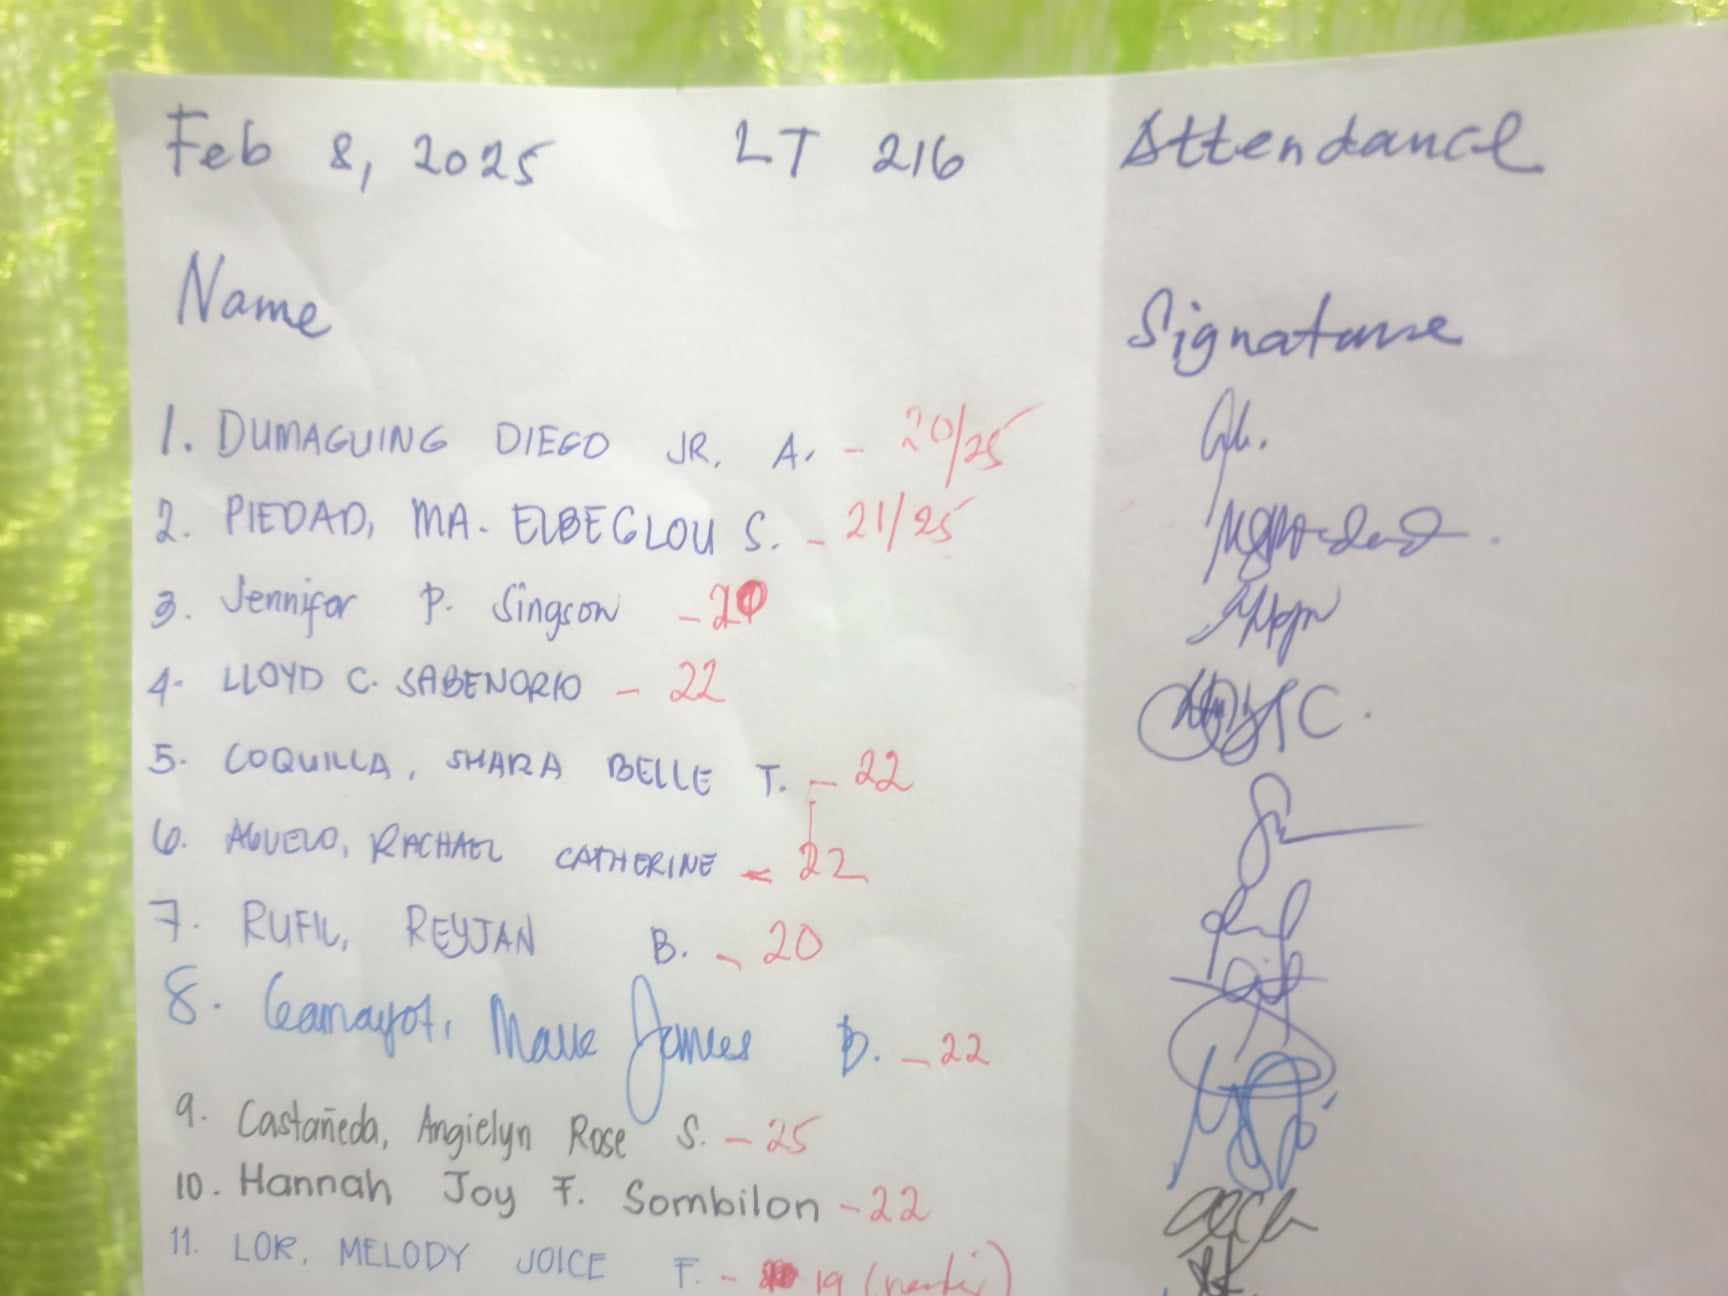 Feb 8, 2025 LT 216 Attendance
Name Signature
1. DUMAGUING DIEGO JR. A. - 20/25
2. PIEDAD, MA. ELBEGLOU S. - 21/25
3. Jennifer P. Singson -
4. LLOYD C. SABENORIO - 22
5. COQUILLA, SHARA BELLE T. - 22
6. AGUELO, RACHAEL CATHERINE - 22
7. RUFIL, REYJAN B. - 20
8. Gamayot, Mark James B. - 22
9. Castañeda, Angielyn Rose S. - 25
10. Hannah Joy F. Sombilon - 22
11. LOR, MELODY JOICE F. - 19